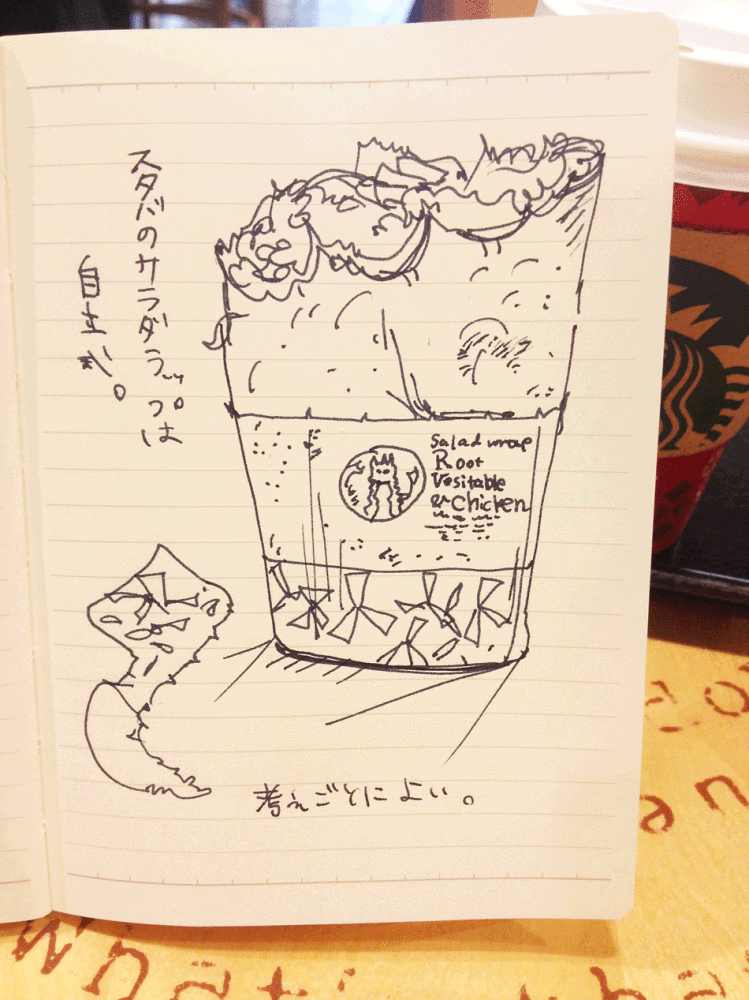 スタバのサラダラップは
自立式。
Salad wrap
Root
Vesitable
&Chicken
考えごとによい。